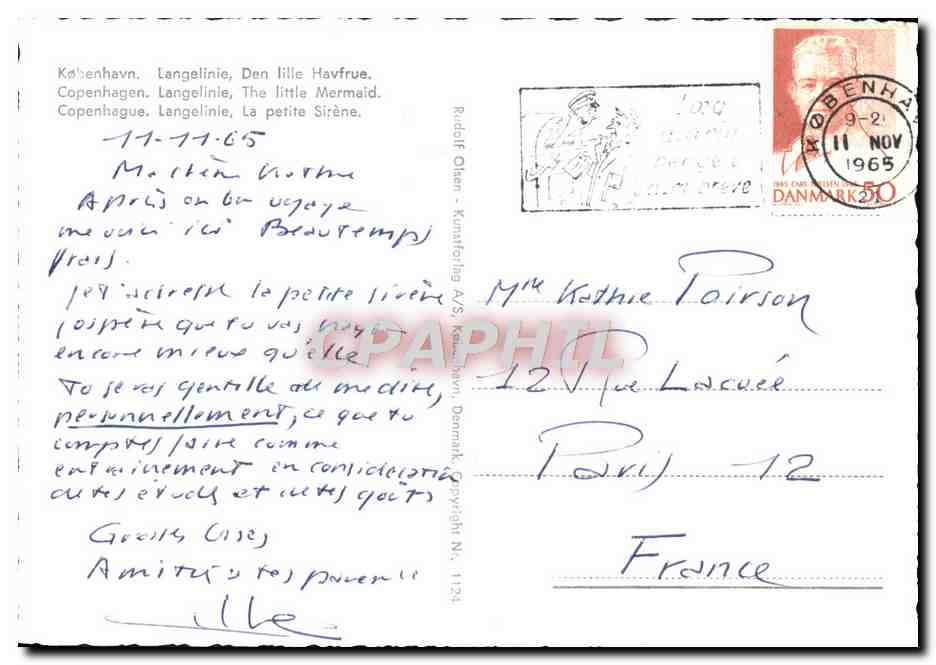 København. Langelinie, Den lille Havfrue.
Copenhagen. Langelinie, The little Mermaid.
Copenhague. Langelinie, La petite Sirène.
11-11-65
Ma chère Kathie
Après un bon voyage
me voici ici Beau temps
frais.
je t'adresse la petite sirène
j'espère que tu vas nager
encore mieux qu'elle
Tu seras gentille de me dire,
personnellement, ce que tu
comptes faire comme
entrainement en considération
de tes études et de tes goûts
Grosses bises
Amitiés à tes parents
Rudolf Olsen - Kunstforlag A/S, København, Denmark. Copyright Nr. 1124
CPAPHIL
Læg
penge i
brev
KØBENHA
9-2
11 NOV
1965
21
1865 CARL NIELSEN
DANMARK 50
Mlle Kathie Poirson
12 Rue Lacuée
Paris 12
France